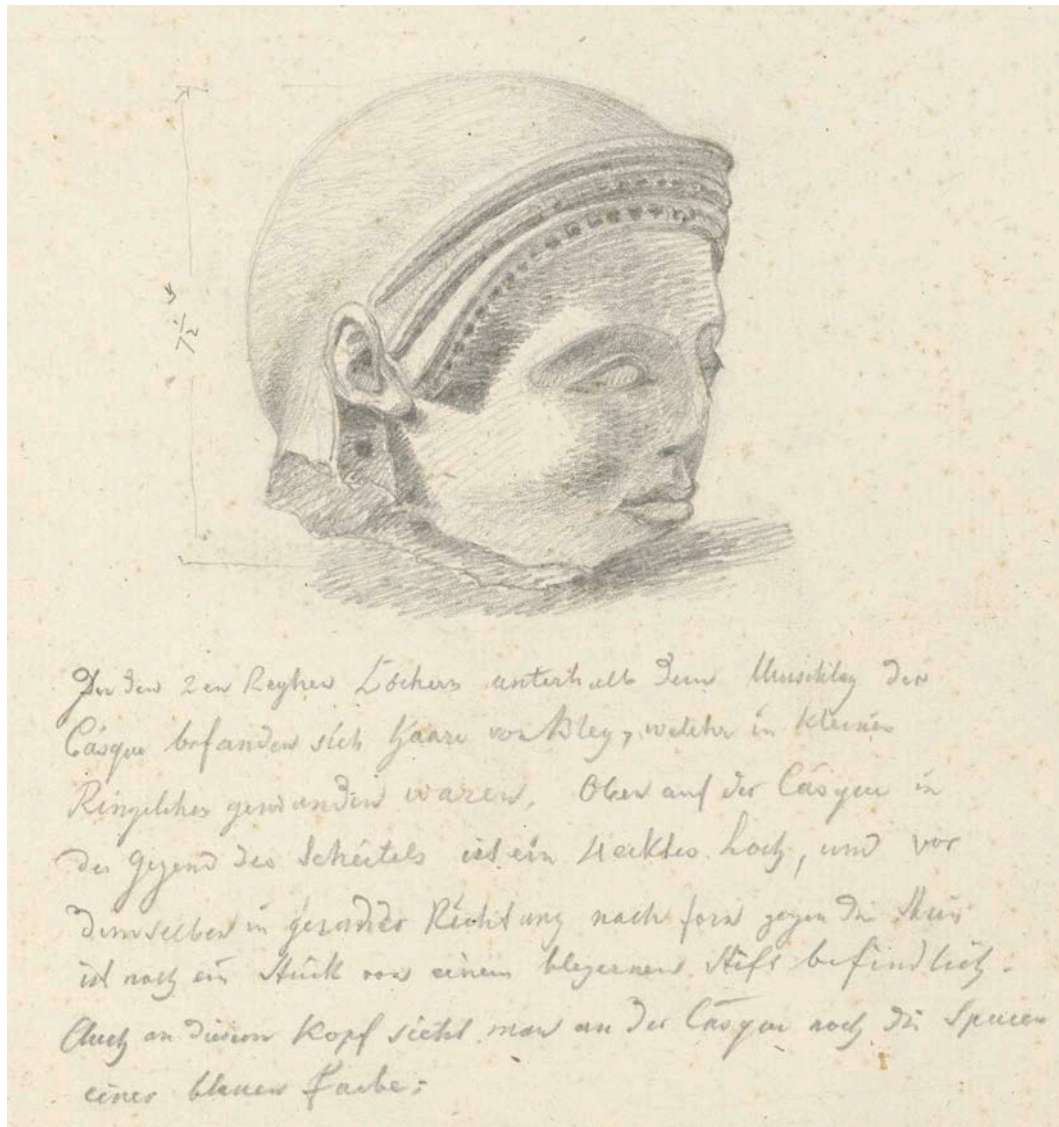 7 1/2
In den 2 en Reyhen Löchern unterhalb dem Umschlag der
Casque befanden sich Haare von Bley, welche in kleinen
Ringelchen gewunden waren. Oben auf der Casque in
der Gegend des Scheitels ist ein 4ecktes Loch, und vor
demselben in gerader Richtung nach forn gegen die Stirn
ist noch ein Stück von einem bleyernen Stift befindlich.
Auch an diesem Kopf sieht man an der Casque noch die Spuren
einer blauen Farbe.